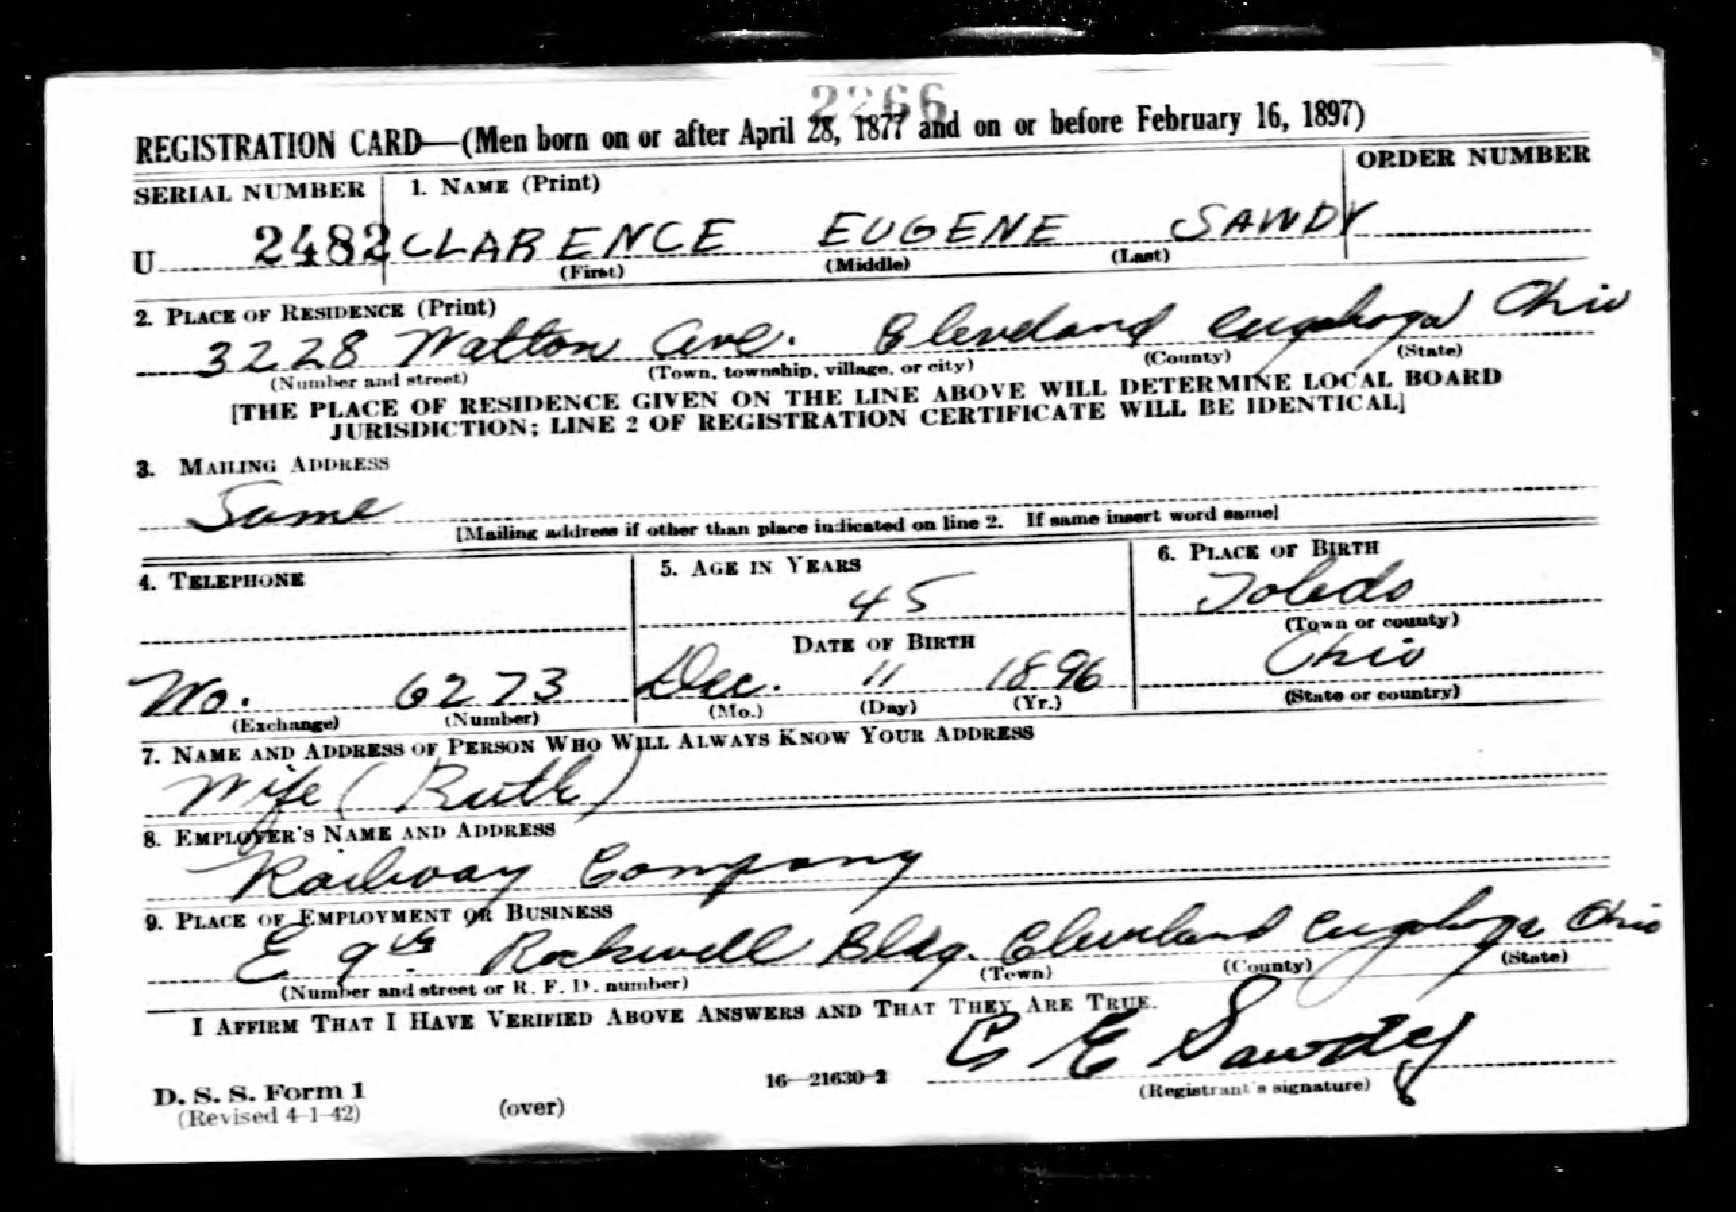 2266
REGISTRATION CARD—(Men born on or after April 28, 1877 and on or before February 16, 1897)
SERIAL NUMBER 1. NAME (Print) ORDER NUMBER
U 2482 CLARENCE EUGENE SAWDY
(First) (Middle) (Last)
2. PLACE OF RESIDENCE (Print)
3228 Walton Ave. Cleveland Cuyahoga Ohio
(Number and street) (Town, township, village, or city) (County) (State)
[THE PLACE OF RESIDENCE GIVEN ON THE LINE ABOVE WILL DETERMINE LOCAL BOARD
JURISDICTION; LINE 2 OF REGISTRATION CERTIFICATE WILL BE IDENTICAL]
3. MAILING ADDRESS
Same
[Mailing address if other than place indicated on line 2. If same insert word same]
4. TELEPHONE 5. AGE IN YEARS 6. PLACE OF BIRTH
45 Toledo
DATE OF BIRTH (Town or county)
Wo. 6273 Dec. 11 1896 Ohio
(Exchange) (Number) (Mo.) (Day) (Yr.) (State or country)
7. NAME AND ADDRESS OF PERSON WHO WILL ALWAYS KNOW YOUR ADDRESS
Wife (Ruth)
8. EMPLOYER'S NAME AND ADDRESS
Railway Company
9. PLACE OF EMPLOYMENT OR BUSINESS
E 9th Rockwell Bldg. Cleveland Cuyahoga Ohio
(Number and street or R. F. D. number) (Town) (County) (State)
I AFFIRM THAT I HAVE VERIFIED ABOVE ANSWERS AND THAT THEY ARE TRUE.
C E Sawdey
D. S. S. Form 1 16—21630-2 (Registrant's signature)
(Revised 4-1-42) (over)